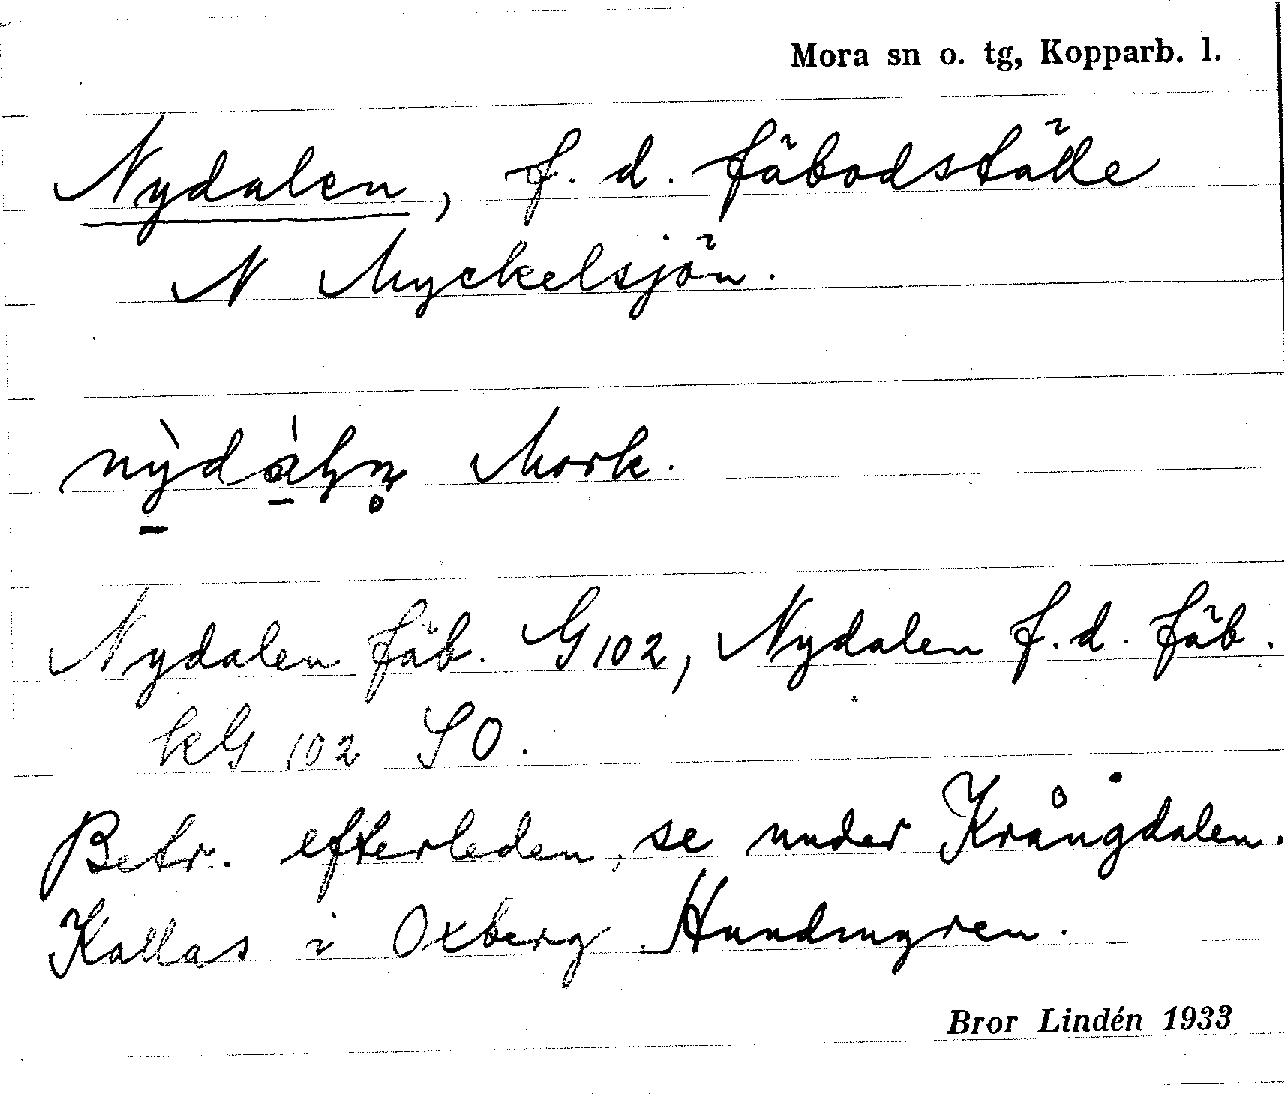 Mora sn o. tg, Kopparb. l.
Nydalen, f. d. fäbodställe
N Myckelsjön.
Mork.
Nydalen fäb. G102, Nydalen f. d. fäb.
kG 102 SO.
Betr. efterleden, se under Krångdalen.
Kallas i Oxberg Hundmyren.
Bror Lindén 1933